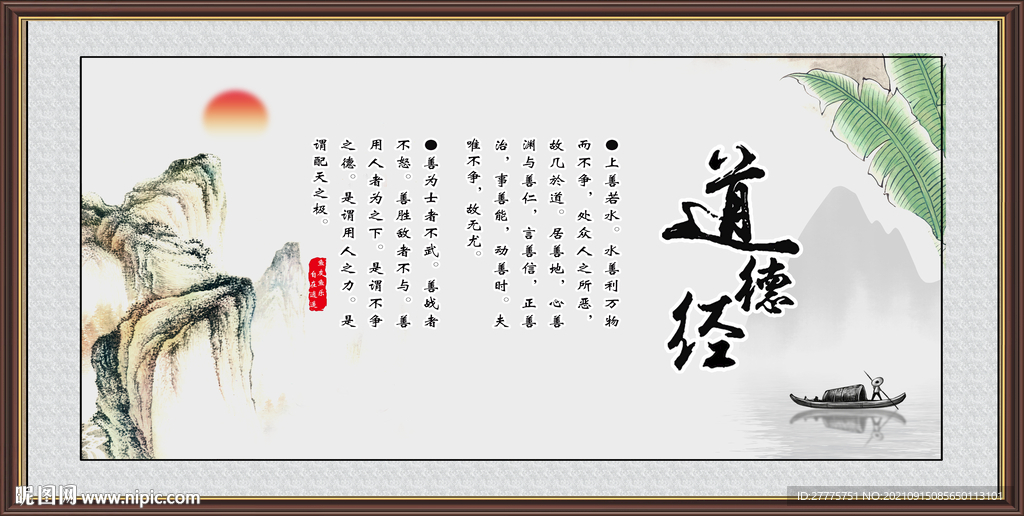 道德经
●上善若水。水善利万物
而不争，处众人之所恶，
故几於道。居善地，心善
渊与善仁，言善信，正善
治，事善能，动善时。夫
唯不争，故无尤。
●善为士者不武。善战者
不怒。善胜敌者不与。善
用人者为之下。是谓不争
之德。是谓用人之力。是
谓配天之极。
自在逍遥
昵图网 www.nipic.com
ID:27775751 NO:20210915085650113101